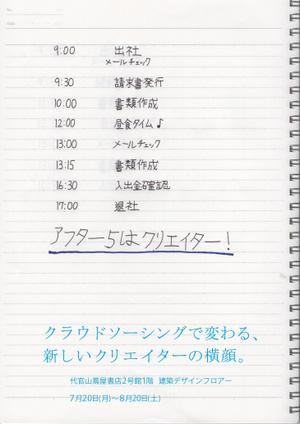 9:00 出社
メールチェック
9:30 請求書発行
10:00 書類作成
12:00 昼食タイム♪
13:00 メールチェック
13:15 書類作成
16:30 入出金確認
17:00 退社
アフター5はクリエイター!
クラウドソーシングで変わる、
新しいクリエイターの横顔。
代官山蔦屋書店2号館1階 建築デザインフロアー
7月20日(月)〜8月20日(土)